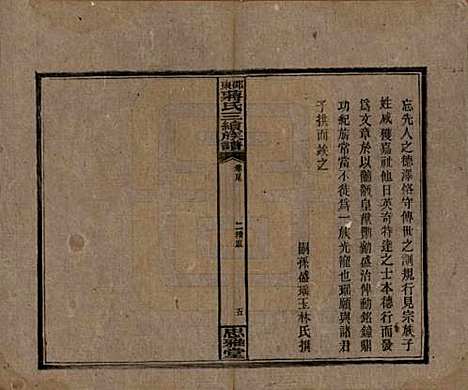 忘先人之德澤恪守傳世之訓規行見宗族子
姓咸獲嘉祉他日英奇特達之士本德行而發
為文章於以黼黻皇猷勳盛治俾勳銘鐘鼎
功紀旂常當不徒為一族光寵也璵願與諸君
子拱而竢之
嗣孫盛璵玉林氏撰
邵東蔣氏三續族譜
卷尾
二續跋
五
思雅堂